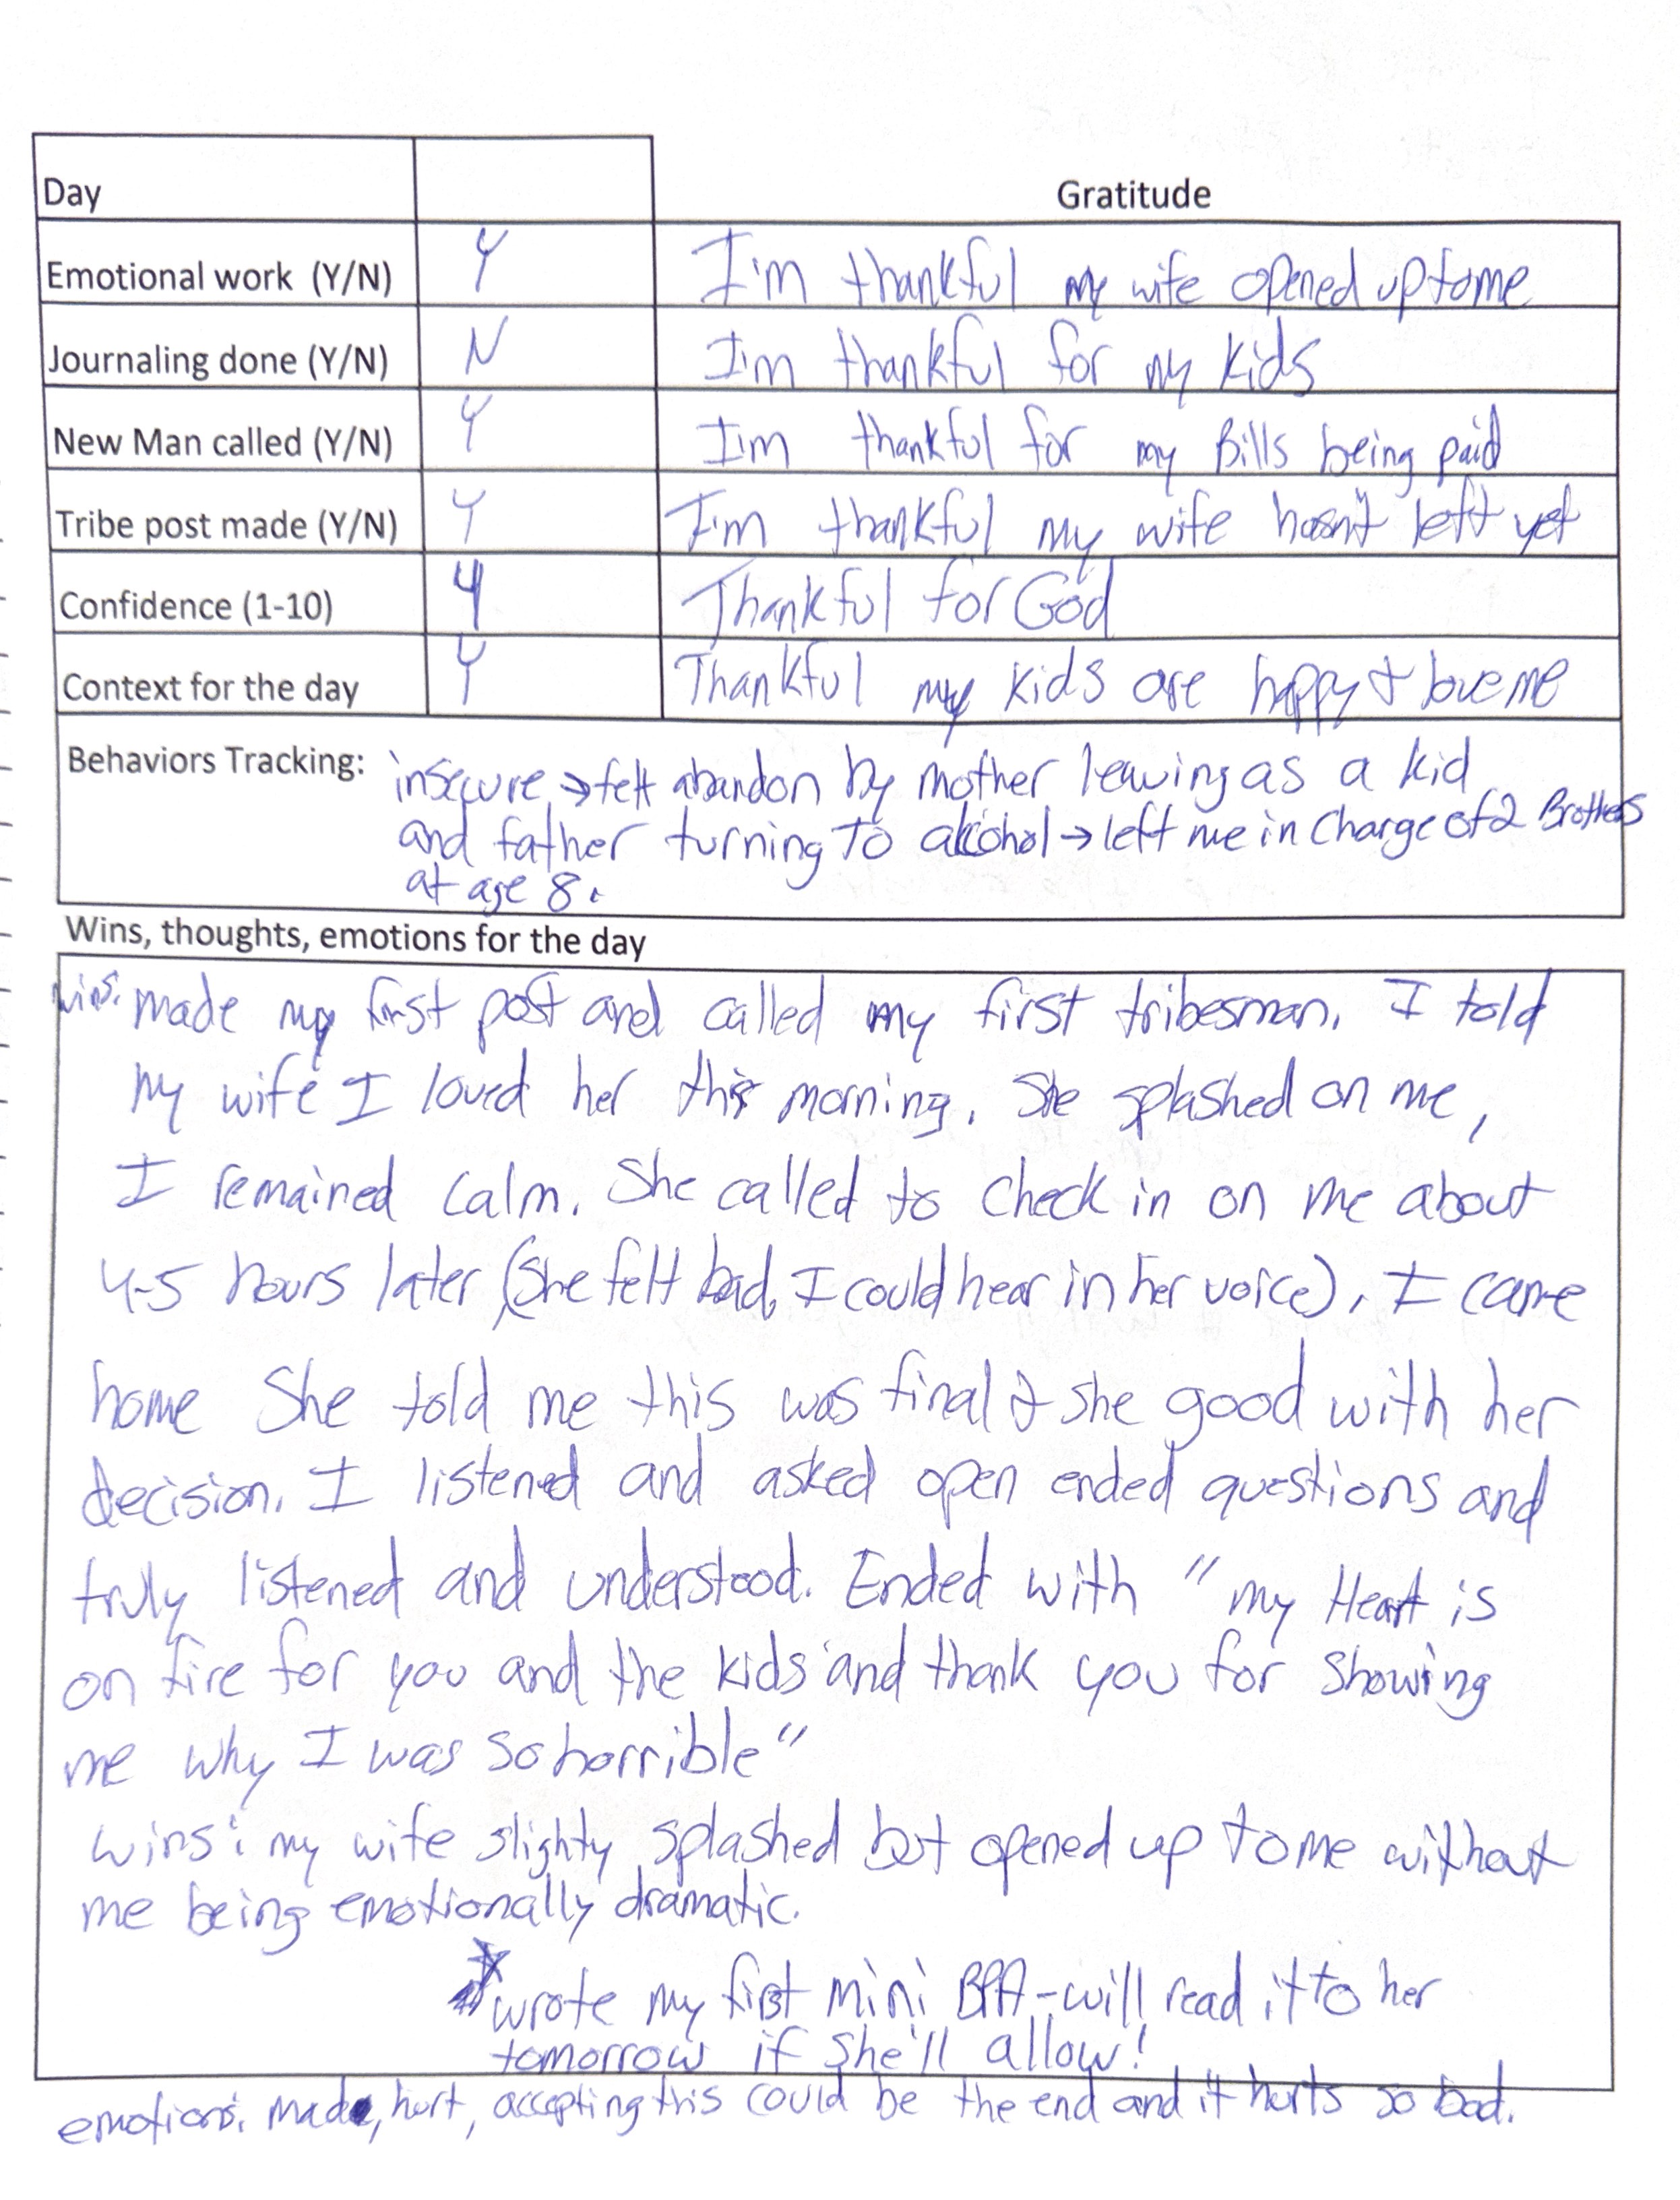 Day
Gratitude
Emotional work (Y/N) Y I'm thankful my wife opened up to me
Journaling done (Y/N) N I'm thankful for my kids
New Man called (Y/N) Y I'm thankful for my Bills being paid
Tribe post made (Y/N) Y I'm thankful my wife hasn't left yet
Confidence (1-10) 4 Thankful for God
Context for the day Y Thankful my kids are happy & love me
Behaviors Tracking: insecure → felt abandon by mother leaving as a kid
and father turning to alcohol → left me in charge of 2 Brothers
at age 8.
Wins, thoughts, emotions for the day
wins: made my first post and called my first tribesman. I told
my wife I loved her this morning. She splashed on me,
I remained calm. She called to check in on me about
4-5 hours later (She felt bad, I could hear in her voice). I came
home She told me this was final & she good with her
decision. I listened and asked open ended questions and
truly listened and understood. Ended with "my Heart is
on fire for you and the kids and thank you for showing
me why I was so horrible"
wins: my wife slighty splashed but opened up to me without
me being emotionally dramatic.
wrote my first mini BPA - will read it to her
tomorrow if she'll allow!
emotions: mad, hurt, accepting this could be the end and it hurts so bad.